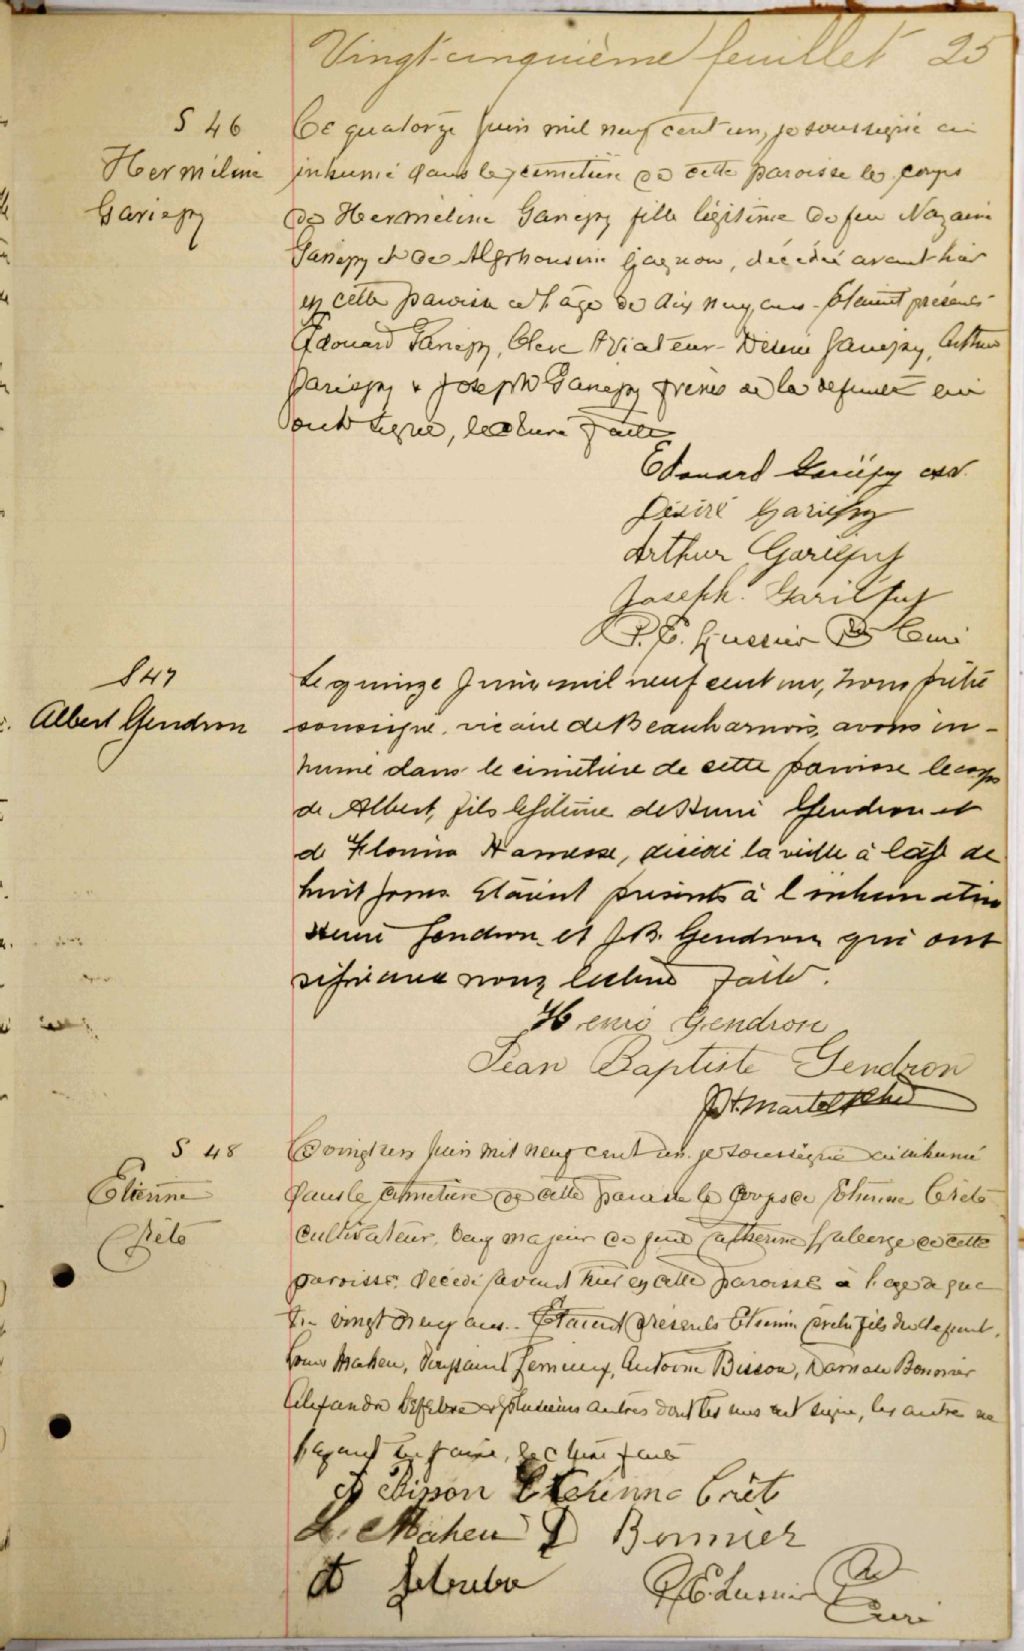 Vingt-cinquième feuillet 25
S 46
Herméline
Gariepy
Ce quatorze juin mil neuf cent un, je soussigné ai
inhumé dans le cimetière de cette paroisse le corps
de Herméline Gariepy fille légitime de feu Nazaire
Gariepy et de Alphonsine Gagnon, décédée avant hier
en cette paroisse à l'âge de dix neuf ans - Etaient présents
Edouard Gariepy, Clerc St Viateur - Désiré Gariepy, Arthur
Gariepy & Joseph Gariepy frères de la défunte qui
ont signé, lecture faite
Edouard Gariépy csv.
Désiré Gariépy
Arthur Gariépy
Joseph. Gariépy
P. E. Lussier Ptre Curé
S 47
Albert Gendron
Le quinze Juin mil neuf cent un, nous prêtre
soussigné, vicaire de Beauharnois, avons in-
humé dans le cimetière de cette paroisse le corps
de Albert, fils légitime de Henri Gendron et
de Florina Hamesse, décédé la veille à l'âge de
huit jours. Etaient présents à l'inhumation
Henri Gendron et J.B. Gendron qui ont
signé avec nous lecture faite.
Henri Gendron
Jean Baptiste Gendron
Martel Ptre
S 48
Etienne
Crête
Ce vingt juin mil neuf cent un je soussigné ai inhumé
dans le cimetière de cette paroisse le corps de Etienne Crête
cultivateur, veuf majeur de feue Catherine Laberge de cette
paroisse, décédé avant hier en cette paroisse à l'age de qua
tre vingt neuf ans.. Etaient présents Etienne Crête fils du défunt,
Louis Maheu, Toussaint Lemieux, Antoine Bisson, Damase Bonnier
Alexandre Lefebvre & plusieurs autres dont les uns ont signé, les autres ne
sachant le faire, lecture faite
A Bisson Etienne Crête
L. Maheu D Bonnier
A Lefebvre P. E. Lussier Ptre
Curé